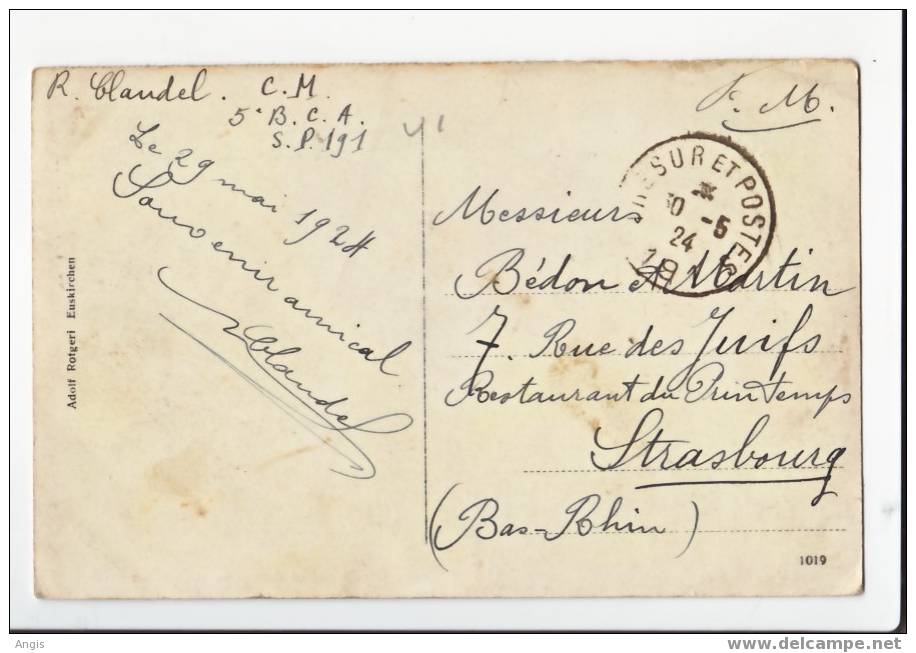 R. Claudel. C.M.
5e B. C. A.
S. P. 191
Le 29 mai 1924
Souvenir amical
RClaudel
F. M.
TRESOR ET POSTES
-5
24
191
Messieurs
Bédon & Martin
7. Rue des Juifs
Restaurant du PrinTemps
Strasbourg
(Bas-Rhin)
Adolf Rotgeri Euskirchen
1019
Angis
www.delcampe.net